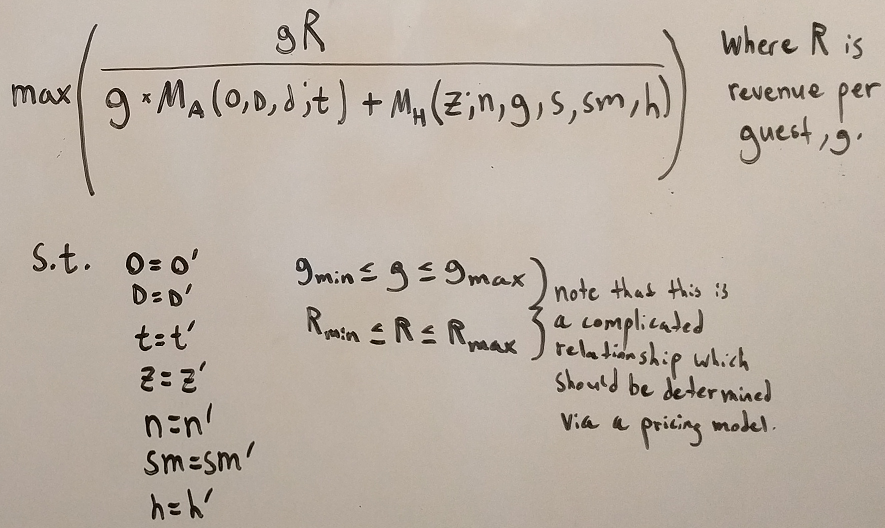 max( gR / g × M_A(O,D,d;t) + M_H(z;n,g,s,sm,h) )
Where R is
revenue per
guest, g.
s.t. O=O'
D=D'
t=t'
z=z'
n=n'
sm=sm'
h=h'
g_min ≤ g ≤ g_max
R_min ≤ R ≤ R_max
note that this is
a complicated
relationship which
should be determined
via a pricing model.